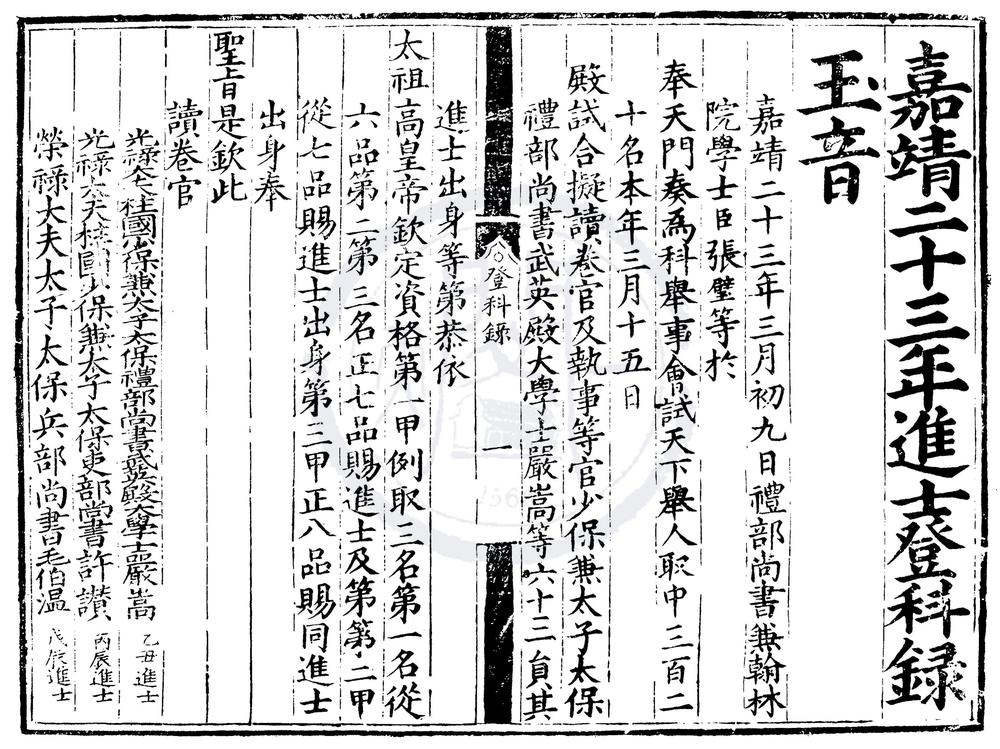 嘉靖二十三年進士登科録
玉音
嘉靖二十三年三月初九日禮部尚書兼翰林
院學士臣張璧等於
奉天門奏爲科舉事會試天下舉人取中三百二
十名本年三月十五日
殿試合擬讀卷官及執事等官少保兼太子太保
禮部尚書武英殿大學士嚴嵩等六十三員其
登科録
一
進士出身等第恭依
太祖高皇帝欽定資格第一甲例取三名第一名從
六品第二第三名正七品賜進士及第第二甲
從七品賜進士出身第三甲正八品賜同進士
出身奉
聖旨是欽此
讀卷官
光祿大夫柱國少保兼太子太保禮部尚書武英殿大學士嚴嵩 乙丑進士
光祿大夫柱國少保兼太子太保吏部尚書許讚 丙辰進士
榮祿大夫太子太保兵部尚書毛伯溫 戊辰進士